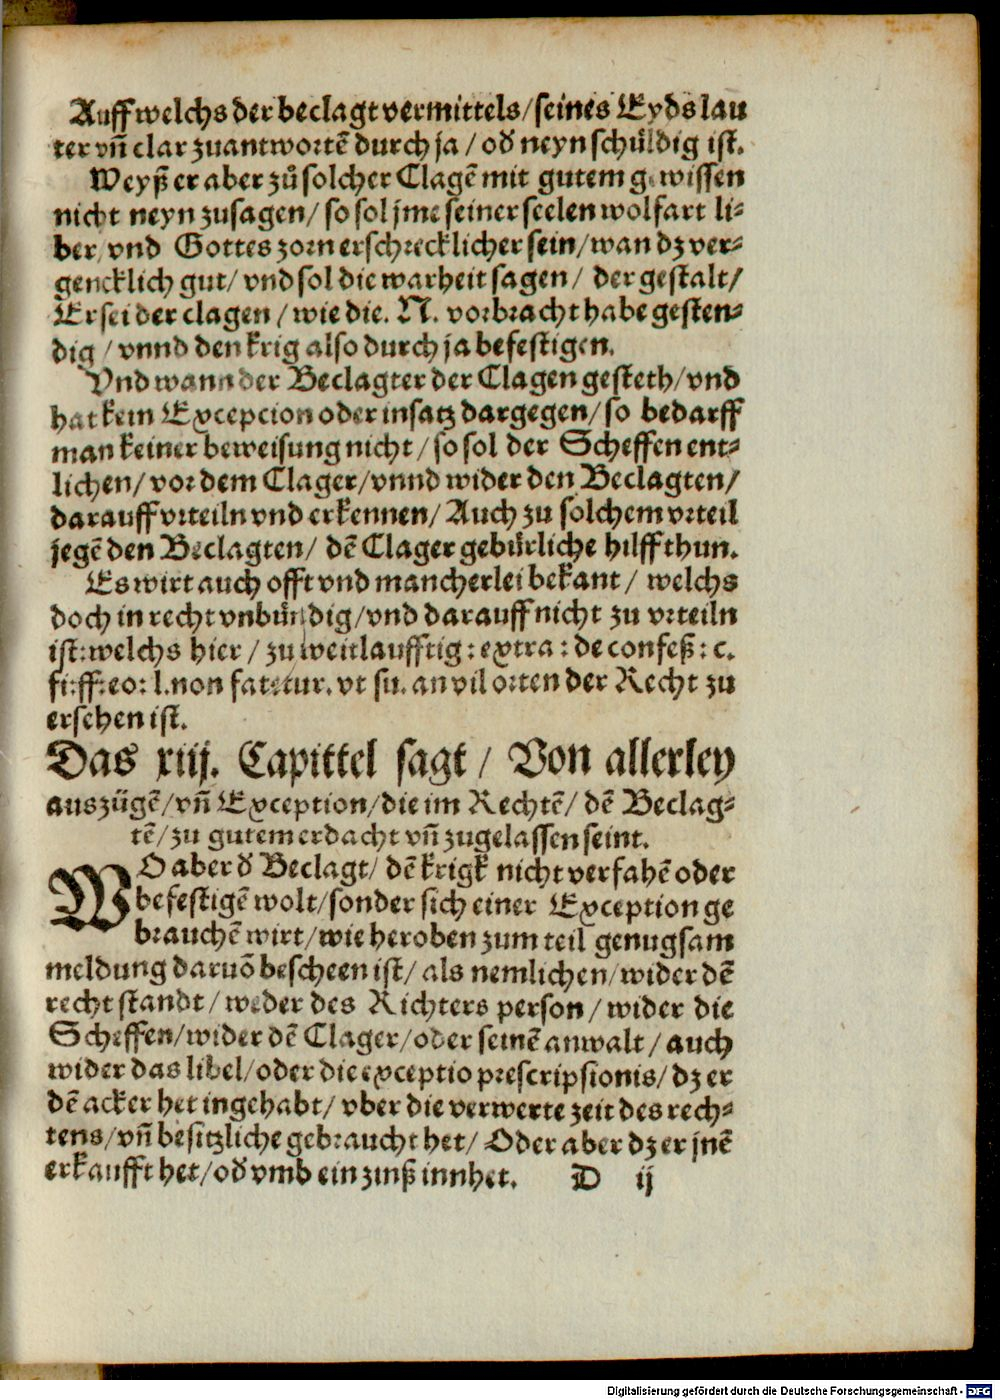 Auff welchs der beclagt vermittels/ seines Eyds lau
ter vñ clar zuantwortē durch ja / od̕ neyn schüldig ist.
Weyß er aber zů solcher Clagē mit gutem gewissen
nicht neyn zusagen/ so sol jme seiner seelen wolfart li-
ber/ vnd Gottes zorn erschrecklicher sein/ wan dz ver-
gencklich gut/ vnd sol die warheit sagen/ der gestalt/
Er sei der clagen / wie die. N. vorbracht habe gesten-
dig / vnnd den krig also durch ja befestigen.
Vnd wann der Beclagter der Clagen gesteth/ vnd
hat kein Excepcion oder insatz dargegen/ so bedarff
man keiner beweisung nicht / so sol der Scheffen ent-
lichen/ vor dem Clager/ vnnd wider den Beclagten/
darauff vrteiln vnd erkennen/ Auch zu solchem vrteil
jegē den Beclagten/ dē Clager gebürliche hilff thun.
Es wirt auch offt vnd mancherlei bekant / welchs
doch in recht vnbündig/ vnd darauff nicht zu vrteiln
ist: welchs hier / zu weitlaufftig : extra : de confeß : c.
fi: ff: eo: l. non fatetur. vt su. an vil orten der Recht zu
ersehen ist.
Das xiij. Capittel sagt / Von allerley
auszügē/ vñ Exception/ die im Rechtē/ dē Beclag-
tē/ zu gutem erdacht vñ zugelassen seint.
WO aber d̕ Beclagt/ dē krigk nicht verfahē oder
befestigē wolt/ sonder sich einer Exception ge
brauchē wirt/ wie heroben zum teil genugsam
meldung daruō bescheen ist/ als nemlichen/ wider dē
recht standt/ weder des Richters person / wider die
Scheffen/ wider dē Clager/ oder seinē anwalt / auch
wider das libel/ oder die exceptio prescripsionis/ dz er
dē acker het ingehabt/ vber die verwerte zeit des rech-
tens/ vñ besitzliche gebraucht het/ Oder aber dz er jnē
erkaufft het/ od̕ vmb ein zinß innhet. D ij
Digitalisierung gefördert durch die Deutsche Forschungsgemeinschaft - DFG